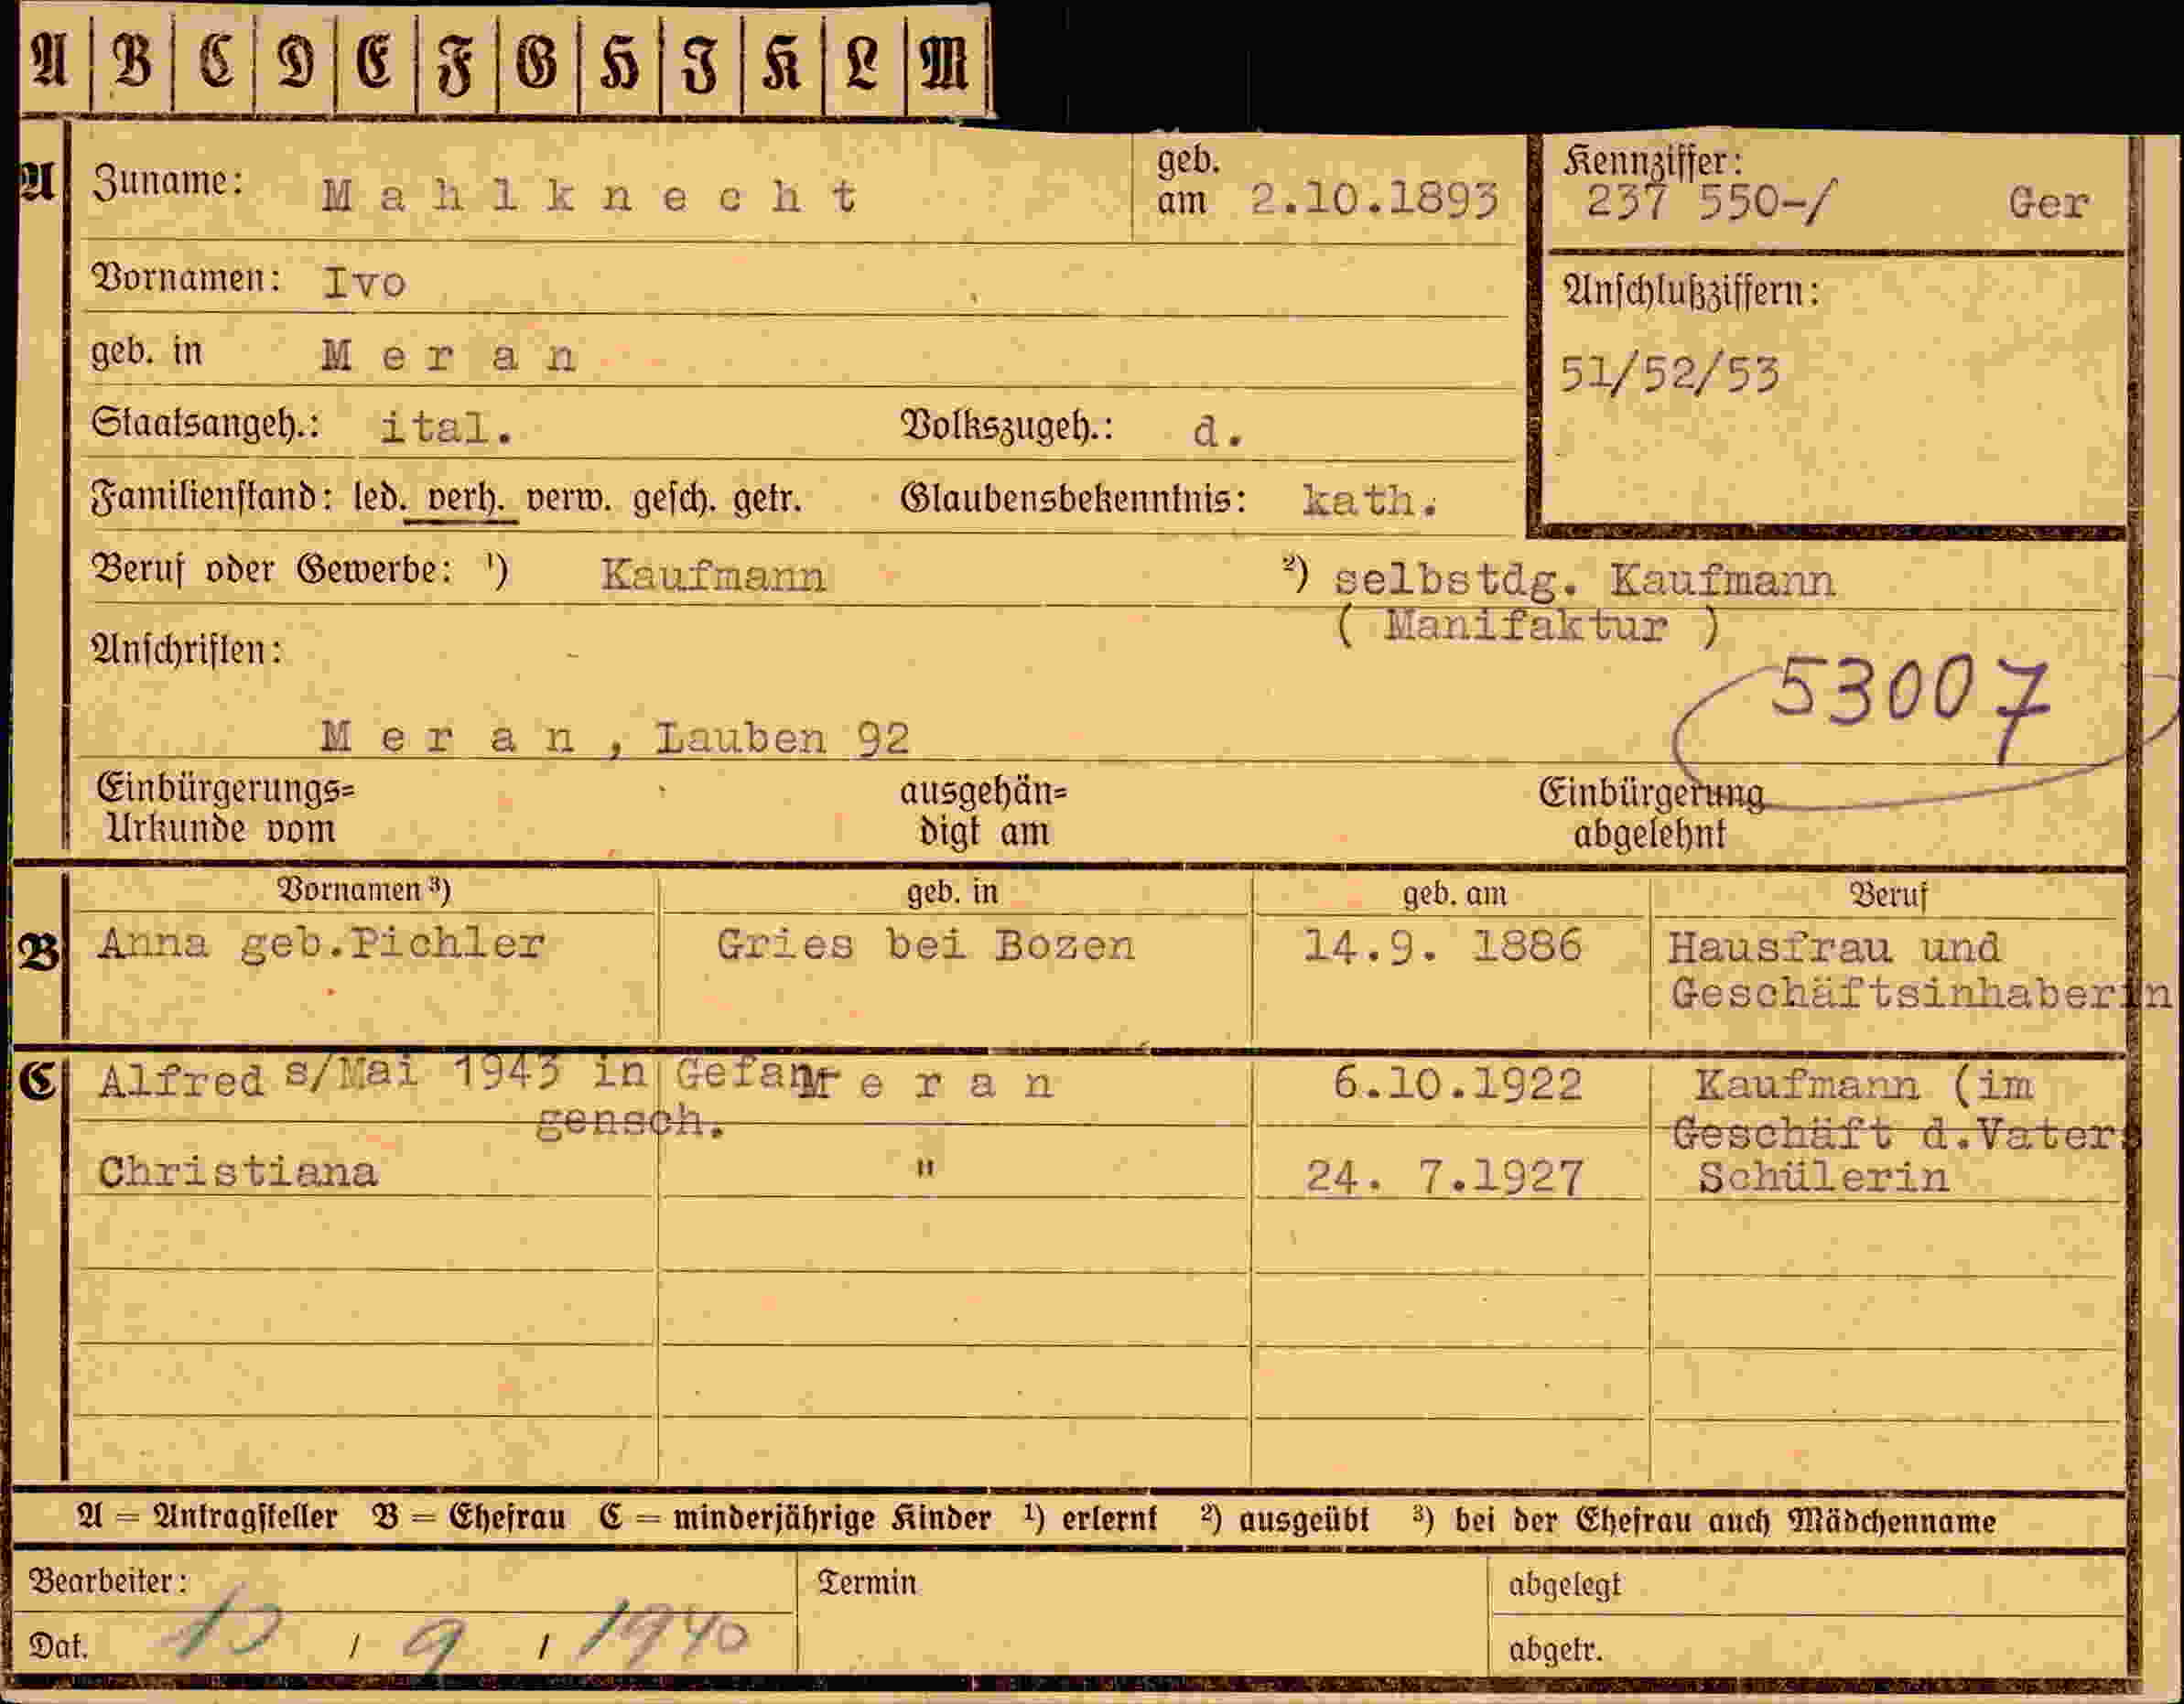 A B C D E F G H I K L M
A Zuname: Mahlknecht geb. am 2.10.1893
Kennziffer: 237 550-/ Ger
Vornamen: Ivo
Anschlußziffern:
geb. in Meran
51/52/53
Staatsangeh.: ital. Volkszugeh.: d.
Familienstand: led. verh. verw. gesch. getr. Glaubensbekenntnis: kath.
Beruf oder Gewerbe: ¹) Kaufmann ²) selbstdg. Kaufmann
( Manifaktur )
Anschriften:
53007
Meran, Lauben 92
Einbürgerungs= ausgehän= Einbürgerung
Urkunde vom digt am abgelehnt
Vornamen ³) geb. in geb. am Beruf
B Anna geb.Pichler Gries bei Bozen 14.9. 1886 Hausfrau und
Geschäftsinhaberin
C Alfred s/Mai 1943 in Gefan Meran 6.10.1922 Kaufmann (im
gensch. Geschäft d.Vaters
Christiana " 24. 7.1927 Schülerin
A = Antragsteller B = Ehefrau C = minderjährige Kinder ¹) erlernt ²) ausgeübt ³) bei der Ehefrau auch Mädchenname
Bearbeiter: Termin abgelegt
Dat. / 9 / 1940 abgetr.